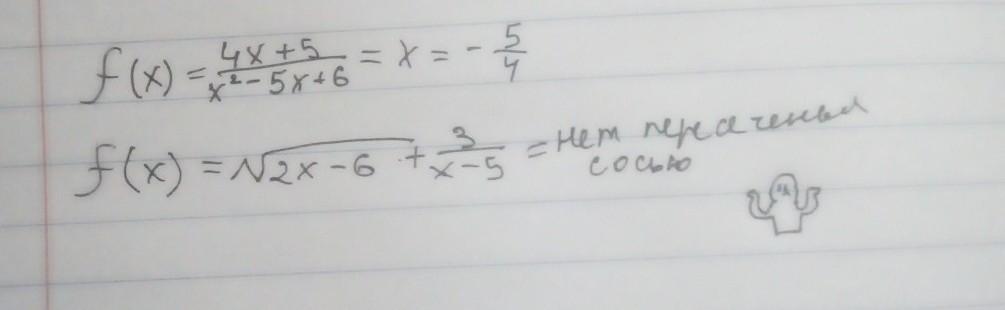 f(x) = (4x+5)/(x²-5x+6) = x = -5/4
f(x) = √(2x-6) + 3/(x-5) = нет пересеченья
сосью